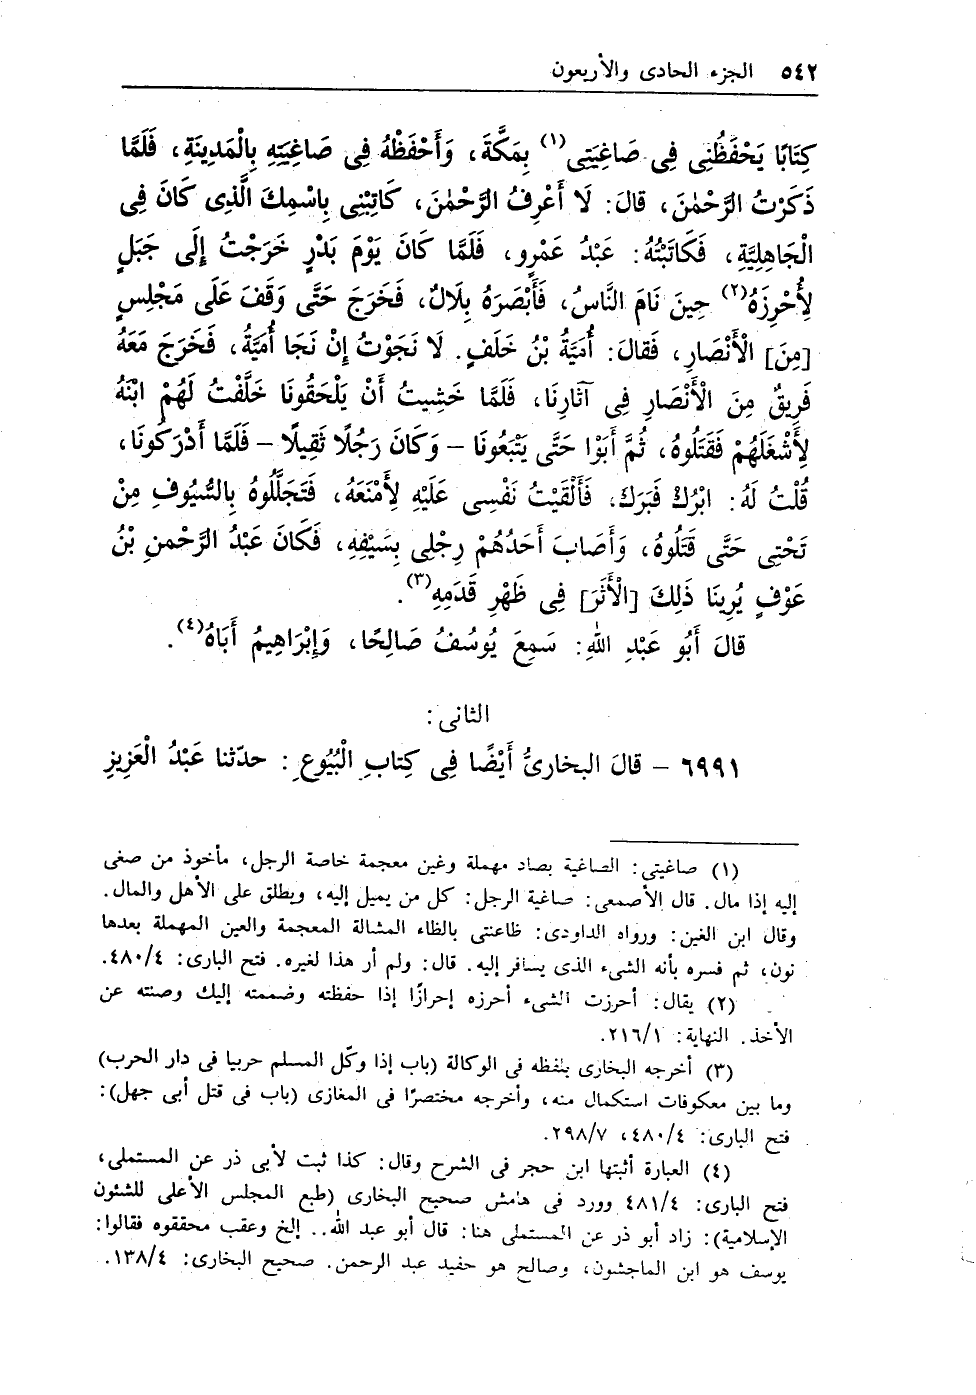 ٥٤٢ الجزء الحادى والأربعون
كِتَابًا يَحْفَظُنِى فِى صَاغِيَتِى(١) بِمَكَّةَ، وَأَحْفَظْهُ فِى صَاغِيَتِهِ بِالْمَدِينَةِ، فَلَمَّا
ذَكَرْتُ الرَّحْمٰنَ، قالَ: لَا أَعْرِفُ الرَّحْمٰنَ، كَاتِبْنِى بِاسْمِكَ الَّذِى كَانَ فِى
الْجَاهِلِيَّةِ، فَكَاتَبْتُهُ: عَبْدُ عَمْرٍو، فَلَمَّا كَانَ يَوْمَ بَدْرٍ خَرَجْتُ إِلَى جَبَلٍ
لِأُحْرِزَهُ(٢) حِينَ نَامَ النَّاسُ، فَأَبْصَرَهُ بِلَالٌ، فَخَرَجَ حَتَّى وَقَفَ عَلَى مَجْلِسٍ
[مِنَ] الْأَنْصَارِ، فَقالَ: أُمَيَّةُ بْنُ خَلَفٍ. لَا نَجَوْتُ إِنْ نَجَا أُمَيَّةُ، فَخَرَجَ مَعَهُ
فَرِيقٌ مِنَ الْأَنْصَارِ فِى آثَارِنَا، فَلَمَّا خَشِيتُ أَنْ يَلْحَقُونَا خَلَّفْتُ لَهُمْ ابْنَهُ
لِأَشْغَلَهُمْ فَقَتَلُوهُ، ثُمَّ أَبَوْا حَتَّى يَتْبَعُونَا – وَكَانَ رَجُلًا ثَقِيلًا – فَلَمَّا أَدْرَكُونَا،
قُلْتُ لَهُ: ابْرُكْ فَبَرَكَ، فَأَلْقَيْتُ نَفْسِى عَلَيْهِ لِأَمْنَعَهُ، فَتَجَلَّلُوهُ بِالسُّيُوفِ مِنْ
تَحْتِى حَتَّى قَتَلُوهُ، وَأَصَابَ أَحَدُهُمْ رِجْلِى بِسَيْفِهِ، فَكَانَ عَبْدُ الرَّحْمنِ بْنُ
عَوْفٍ يُرِينَا ذَلِكَ [الْأَثَرَ] فِى ظَهْرِ قَدَمِهِ(٣).
قالَ أَبُو عَبْدِ اللهِ: سَمِعَ يُوسُفُ صَالِحًا، وَإِبْرَاهِيمُ أَبَاهُ(٤).
الثانى:
٦٩٩١ – قالَ البخارىُّ أَيْضًا فِى كِتَابِ الْبُيُوعِ: حدّثنا عَبْدُ الْعَزِيزِ
(١) صاغيتى: الصاغية بصاد مهملة وغين معجمة خاصة الرجل، مأخوذ من صغى
إليه إذا مال. قال الأصمعى: صاغية الرجل: كل من يميل إليه، ويطلق على الأهل والمال.
وقال ابن الغين: ورواه الداودى: ظاعنتى بالظاء المشالة المعجمة والعين المهملة بعدها
نون، ثم فسره بأنه الشىء الذى يسافر إليه. قال: ولم أر هذا لغيره. فتح البارى: ٤٨٠/٤.
(٢) يقال: أحرزت الشىء أحرزه إحرازًا إذا حفظته وضممته إليك وصنته عن
الأخذ. النهاية: ٢١٦/١.
(٣) أخرجه البخارى بلفظه فى الوكالة (باب إذا وكّل المسلم حربيا فى دار الحرب)
وما بين معكوفات استكمال منه، وأخرجه مختصرًا فى المغازى (باب فى قتل أبى جهل):
فتح البارى: ٤٨٠/٤، ٢٩٨/٧.
(٤) العبارة أثبتها ابن حجر فى الشرح وقال: كذا ثبت لأبى ذر عن المستملى،
فتح البارى: ٤٨١/٤ وورد فى هامش صحيح البخارى (طبع المجلس الأعلى للشئون
الإسلامية): زاد أبو ذر عن المستملى هنا: قال أبو عبد الله.. إلخ وعقب محققوه فقالوا:
يوسف هو ابن الماجشون، وصالح هو حفيد عبد الرحمن. صحيح البخارى: ١٣٨/٤.